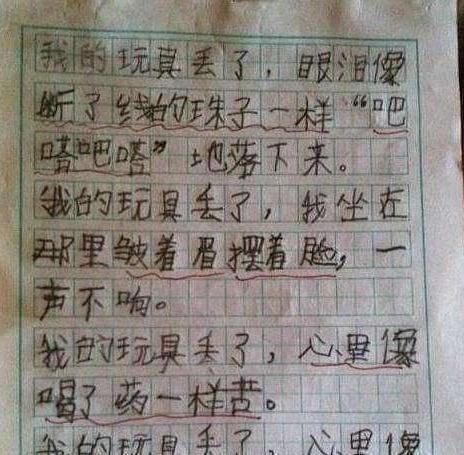 我的玩具丢了，眼泪像
断了线的珠子一样“吧
嗒吧嗒”地落下来。
我的玩具丢了，我坐在
那里皱着眉摆着脸，一
声不响。
我的玩具丢了，心里像
喝了药一样苦。
我的玩具丢了，心里像